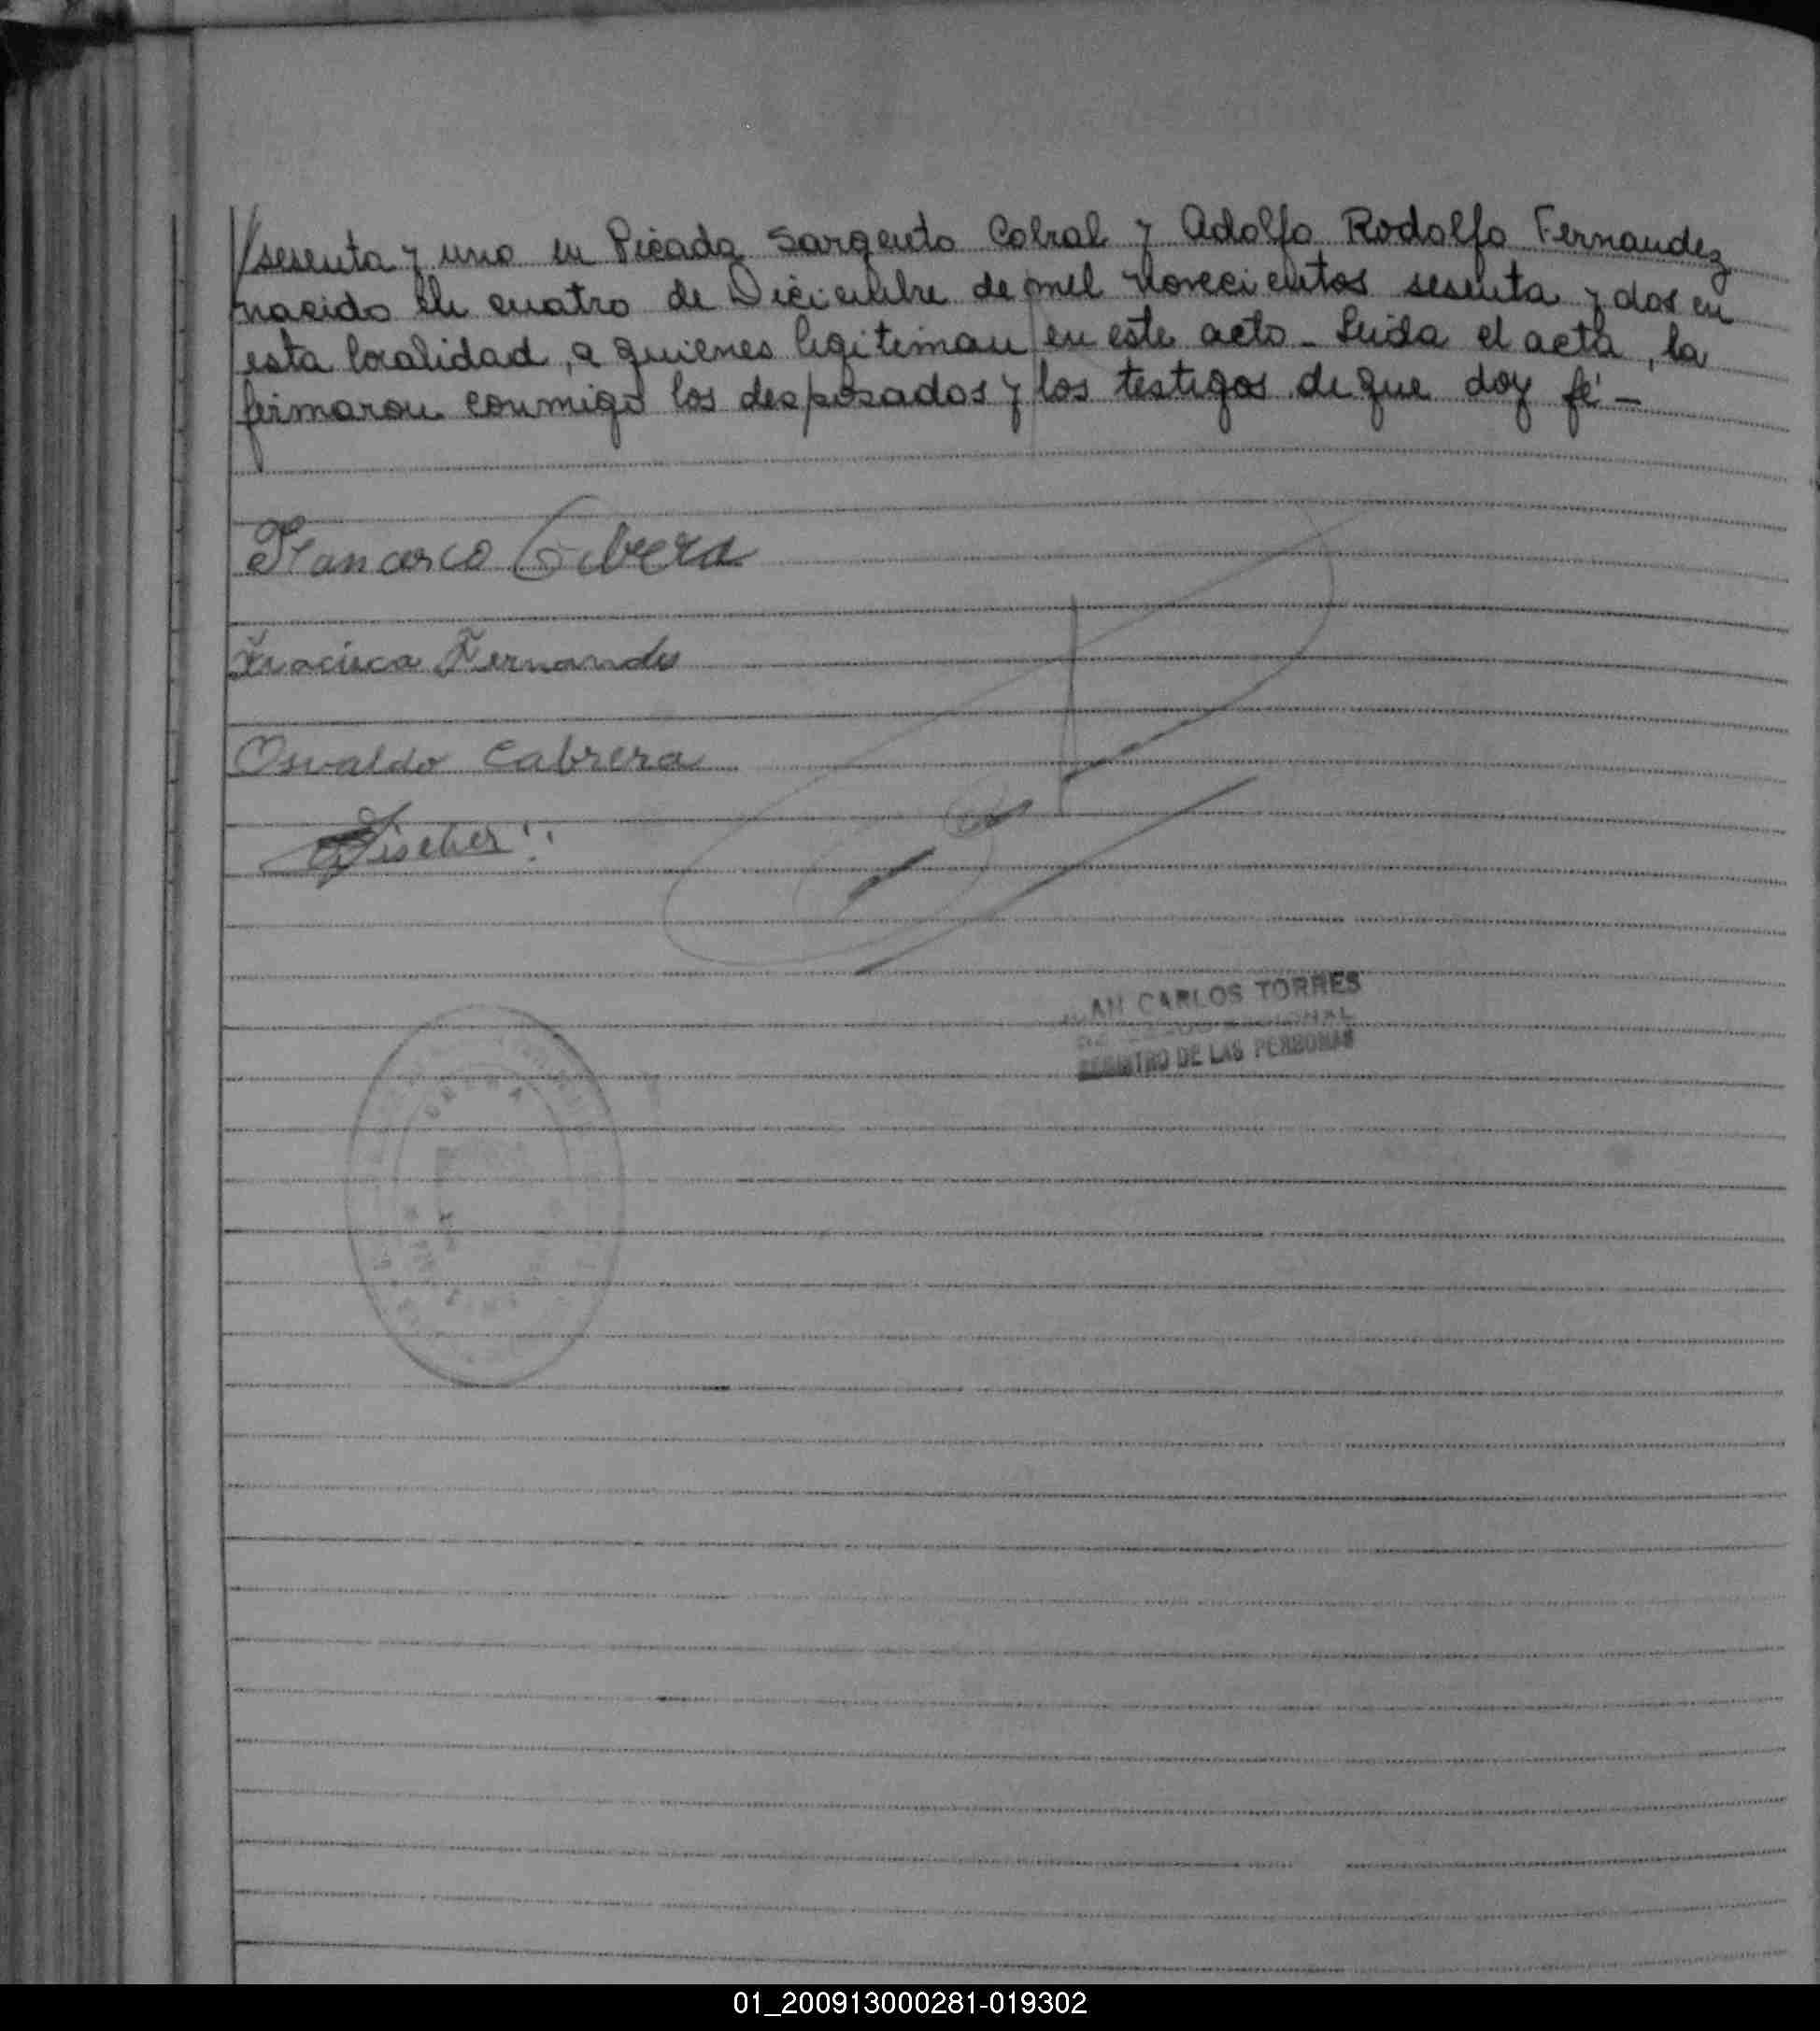 /sesenta y uno en Picada Sargento Cabral y Adolfo Rodolfo Fernandez
nacido el cuatro de Diciembre de mil novecientos sesenta y dos en
esta localidad, a quienes legitiman en este acto - Leida el acta, la
firmaron conmigo los desposados y los testigos de que doy fé -
Francisco Cabrera
Fracisca Fernandes
Osvaldo Cabrera
Fischer
JUAN CARLOS TORRES
REGISTRO DE LAS PERSONAS
01_200913000281-019302